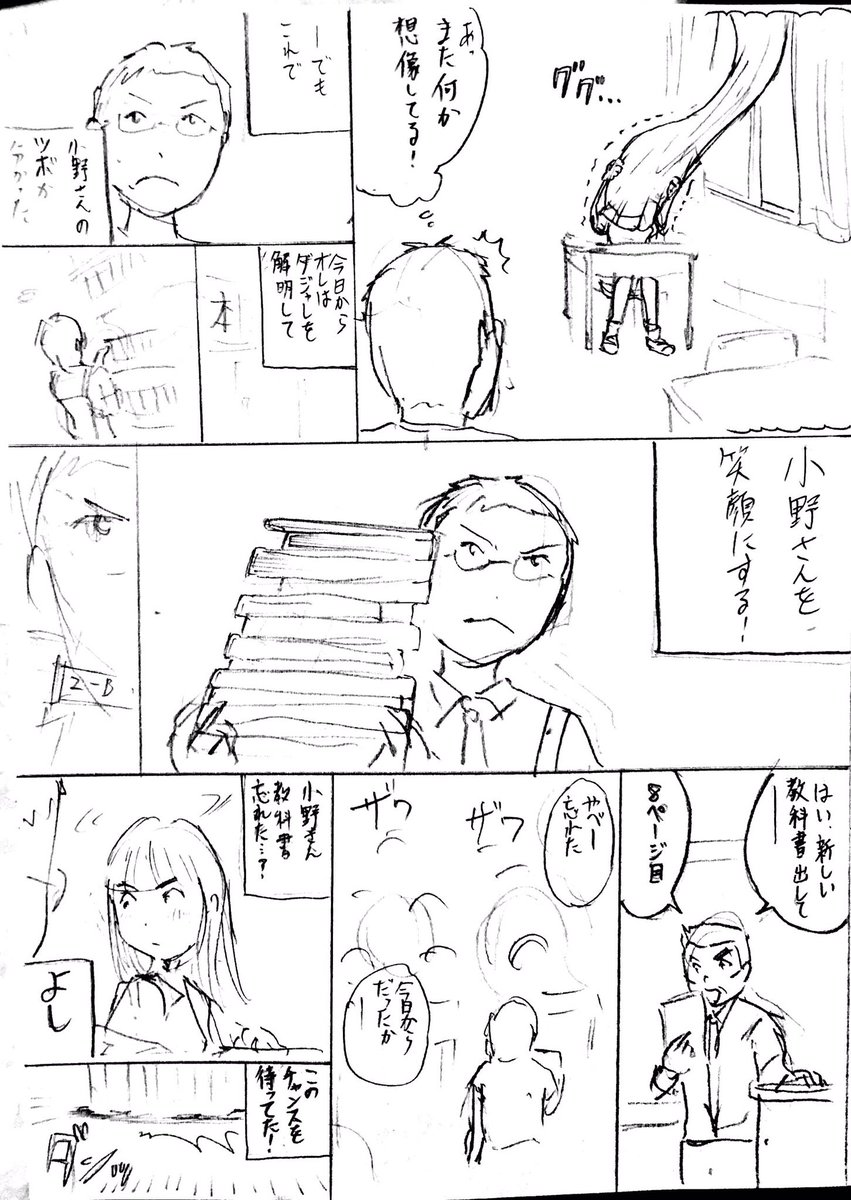 ググ…
あっ
また何か
想像してる！
ーでも
これで
小野さんの
ツボが
分かった
今日から
オレは
ダジャレを
解明して
本
小野さんを
笑顔にする！
2-B
はい、新しい
教科書出して
ー
8ページ目
やべー
忘れた
ザワ
ザワ
今日から
だったか
ー
小野さん
教科書
忘れた…？！
よし
この
チャンスを
待ってた！
ダンッ